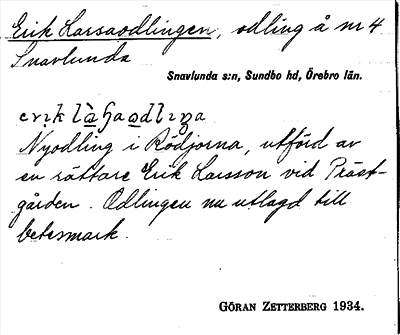 Erik Larsaodlingen, odling å nr 4
Snavlunda
Snavlunda s:n, Sundbo hd, Örebro län.
Nyodling i Rödjorna, utförd av
en rättare Erik Larsson vid Präst-
gården. Odlingen nu utlagd till
betesmark.
GÖRAN ZETTERBERG 1934.